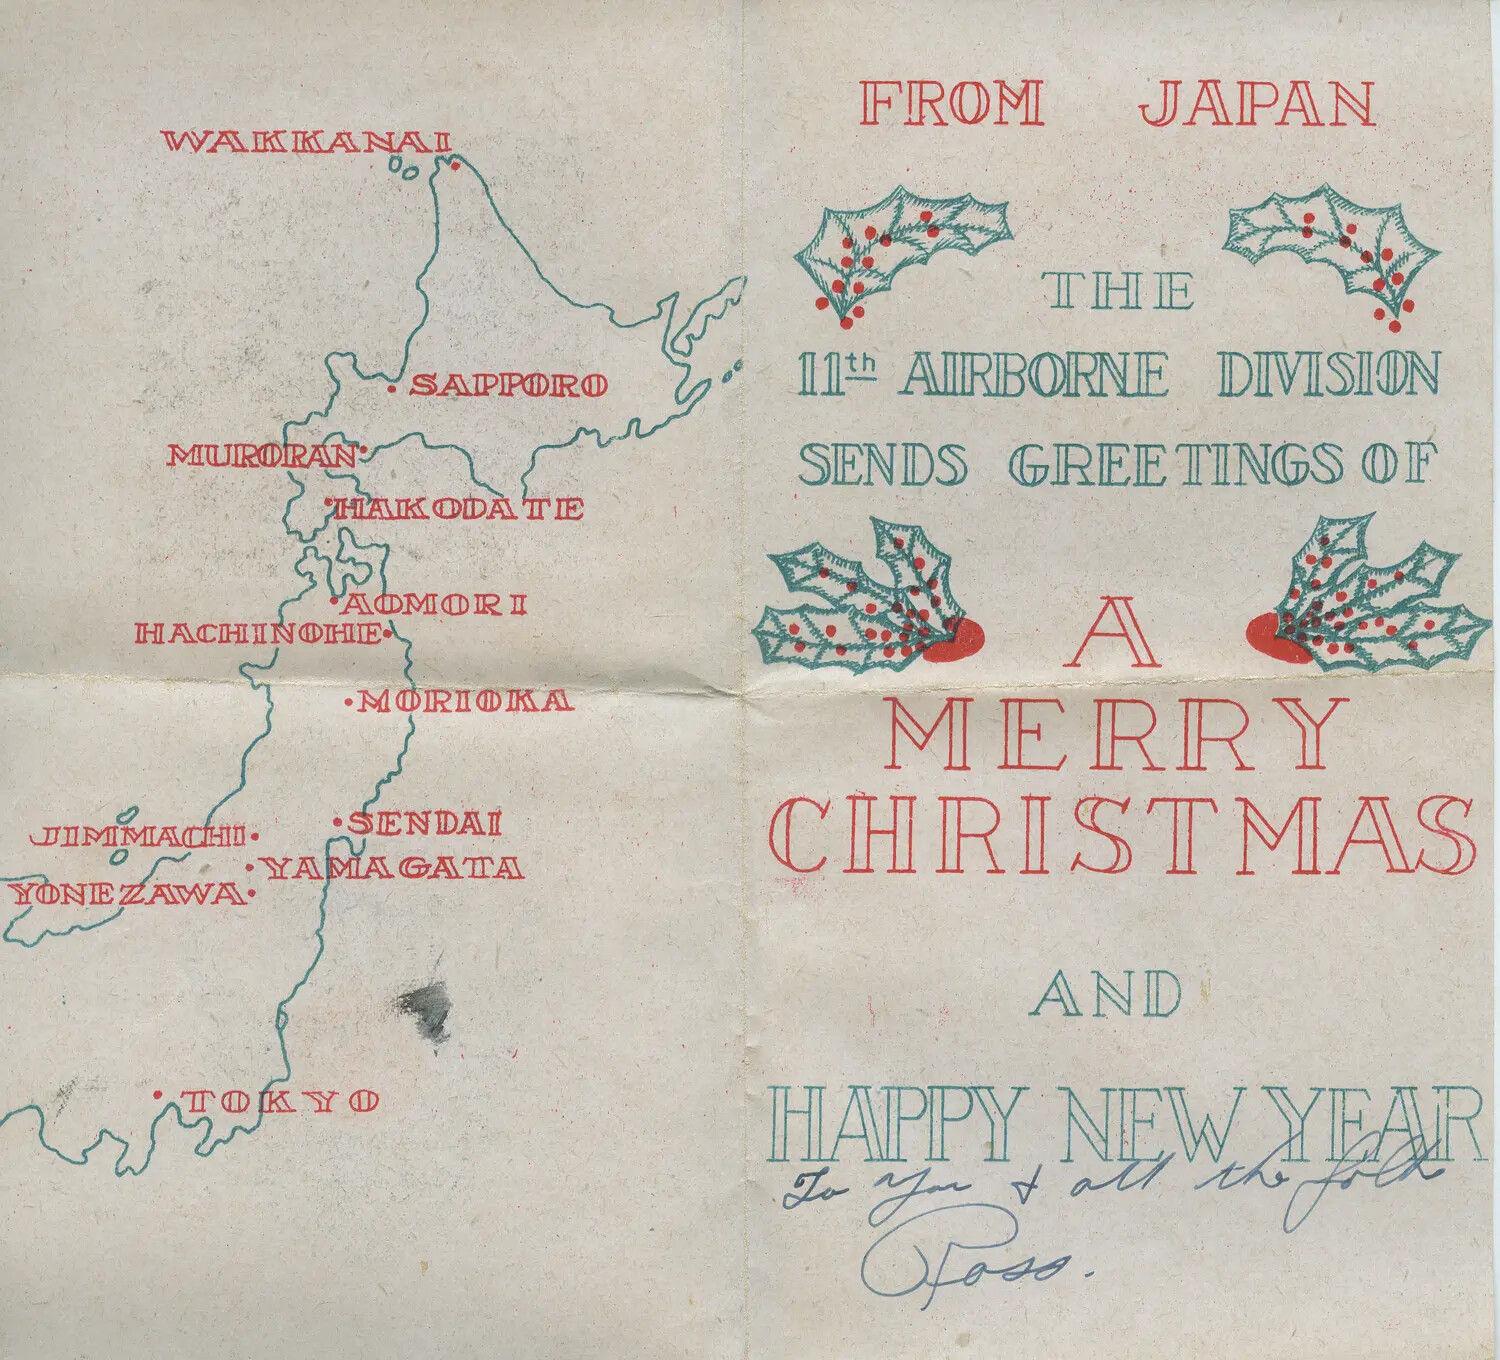 WAKKANAI
SAPPORO
MURORAN
HAKODATE
AOMORI
HACHINOHE
MORIOKA
SENDAI
JIMMACHI
YAMAGATA
YONEZAWA
TOKYO
FROM JAPAN
THE
11th AIRBORNE DIVISION
SENDS GREETINGS OF
A
MERRY
CHRISTMAS
AND
HAPPY NEW YEAR
To You & all the folk
Ross.